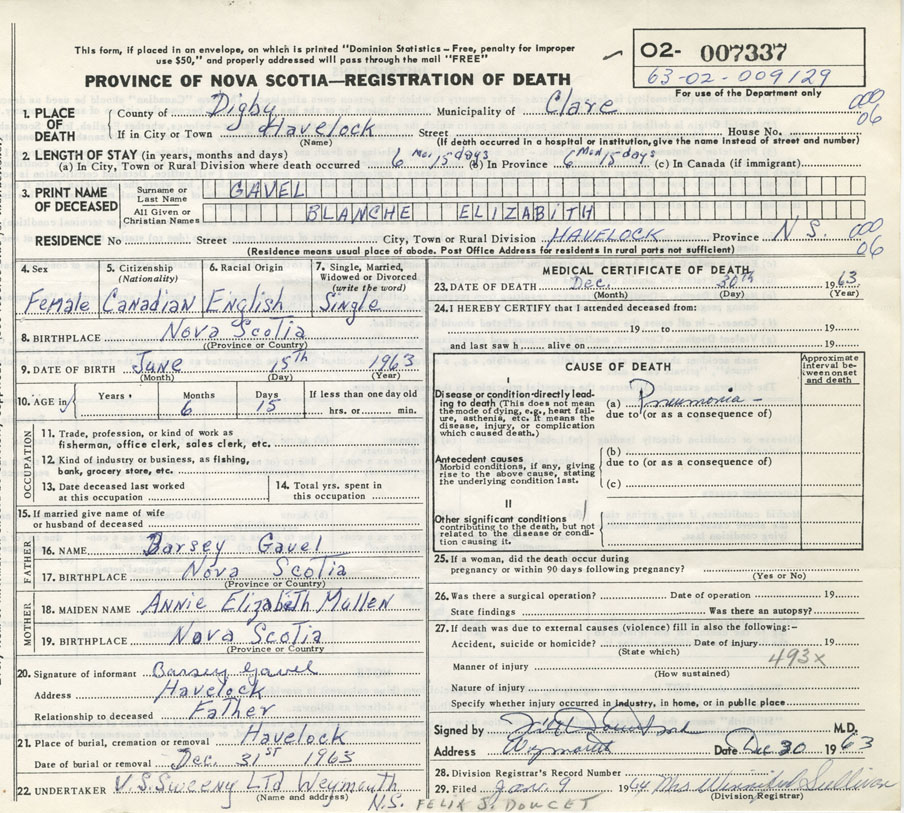 This form, if placed in an envelope, on which is printed "Dominion Statistics – Free, penalty for improper
use $50," and properly addressed will pass through the mail "FREE"
O2- 007337
63-02-009129
For use of the Department only
PROVINCE OF NOVA SCOTIA—REGISTRATION OF DEATH
000
06
1. PLACE OF DEATH
County of Digby Municipality of Clare
If in City or Town Havelock Street House No.
(Name) (If death occurred in a hospital or institution, give the name instead of street and number)
2. LENGTH OF STAY (in years, months and days)
(a) In City, Town or Rural Division where death occurred 6 Mos 15 days (b) In Province 6 Mon 15 days (c) In Canada (if immigrant)
3. PRINT NAME OF DECEASED
Surname or Last Name GAVEL
All Given or Christian Names BLANCHE ELIZABITH
RESIDENCE No Street City, Town or Rural Division HAVELOCK Province N S.
000
06
(Residence means usual place of abode. Post Office Address for residents in rural parts not sufficient)
4. Sex
Female
5. Citizenship (Nationality)
Canadian
6. Racial Origin
English
7. Single, Married, Widowed or Divorced (write the word)
Single
8. BIRTHPLACE Nova Scotia
(Province or Country)
9. DATE OF BIRTH June 15th 1963
(Month) (Day) (Year)
10. AGE in Years Months 6 Days 15 If less than one day old
hrs. or min.
OCCUPATION
11. Trade, profession, or kind of work as
fisherman, office clerk, sales clerk, etc.
12. Kind of industry or business, as fishing,
bank, grocery store, etc.
13. Date deceased last worked
at this occupation
14. Total yrs. spent in
this occupation
15. If married give name of wife
or husband of deceased
FATHER
16. NAME Barsey Gavel
17. BIRTHPLACE Nova Scotia
(Province or Country)
MOTHER
18. MAIDEN NAME Annie Elizabeth Mullen
19. BIRTHPLACE Nova Scotia
(Province or Country)
20. Signature of informant Barsey Gavel
Address Havelock
Relationship to deceased Father
21. Place of burial, cremation or removal Havelock
Date of burial or removal Dec. 31st 1963
22. UNDERTAKER V.S. Sweeny LTD Weymouth
(Name and address) N.S. FELIX S. DOUCET
MEDICAL CERTIFICATE OF DEATH
23. DATE OF DEATH Dec. 30th 1963
(Month) (Day) (Year)
24. I HEREBY CERTIFY that I attended deceased from:
19 to 19
and last saw h alive on 19
CAUSE OF DEATH
Approximate interval between onset and death
I
Disease or condition directly leading to death (This does not mean
the mode of dying, e.g., heart failure, asthenia, etc. It means the
disease, injury, or complication
which caused death.)
(a) Pneumonia –
due to (or as a consequence of)
Antecedent causes
Morbid conditions, if any, giving
rise to the above cause, stating
the underlying condition last.
(b)
due to (or as a consequence of)
(c)
II
Other significant conditions
contributing to the death, but not
related to the disease or condition causing it.
25. If a woman, did the death occur during
pregnancy or within 90 days following pregnancy?
(Yes or No)
26. Was there a surgical operation? Date of operation 19
State findings Was there an autopsy?
27. If death was due to external causes (violence) fill in also the following:–
Accident, suicide or homicide? Date of injury 19
(State which) 493x
Manner of injury
(How sustained)
Nature of injury
Specify whether injury occurred in industry, in home, or in public place
Signed by M.D.
Address Weymouth Date Dec 30 1963
28. Division Registrar's Record Number
29. Filed Jan. 9 1964 Mrs Winnifred Sullivan
(Division Registrar)